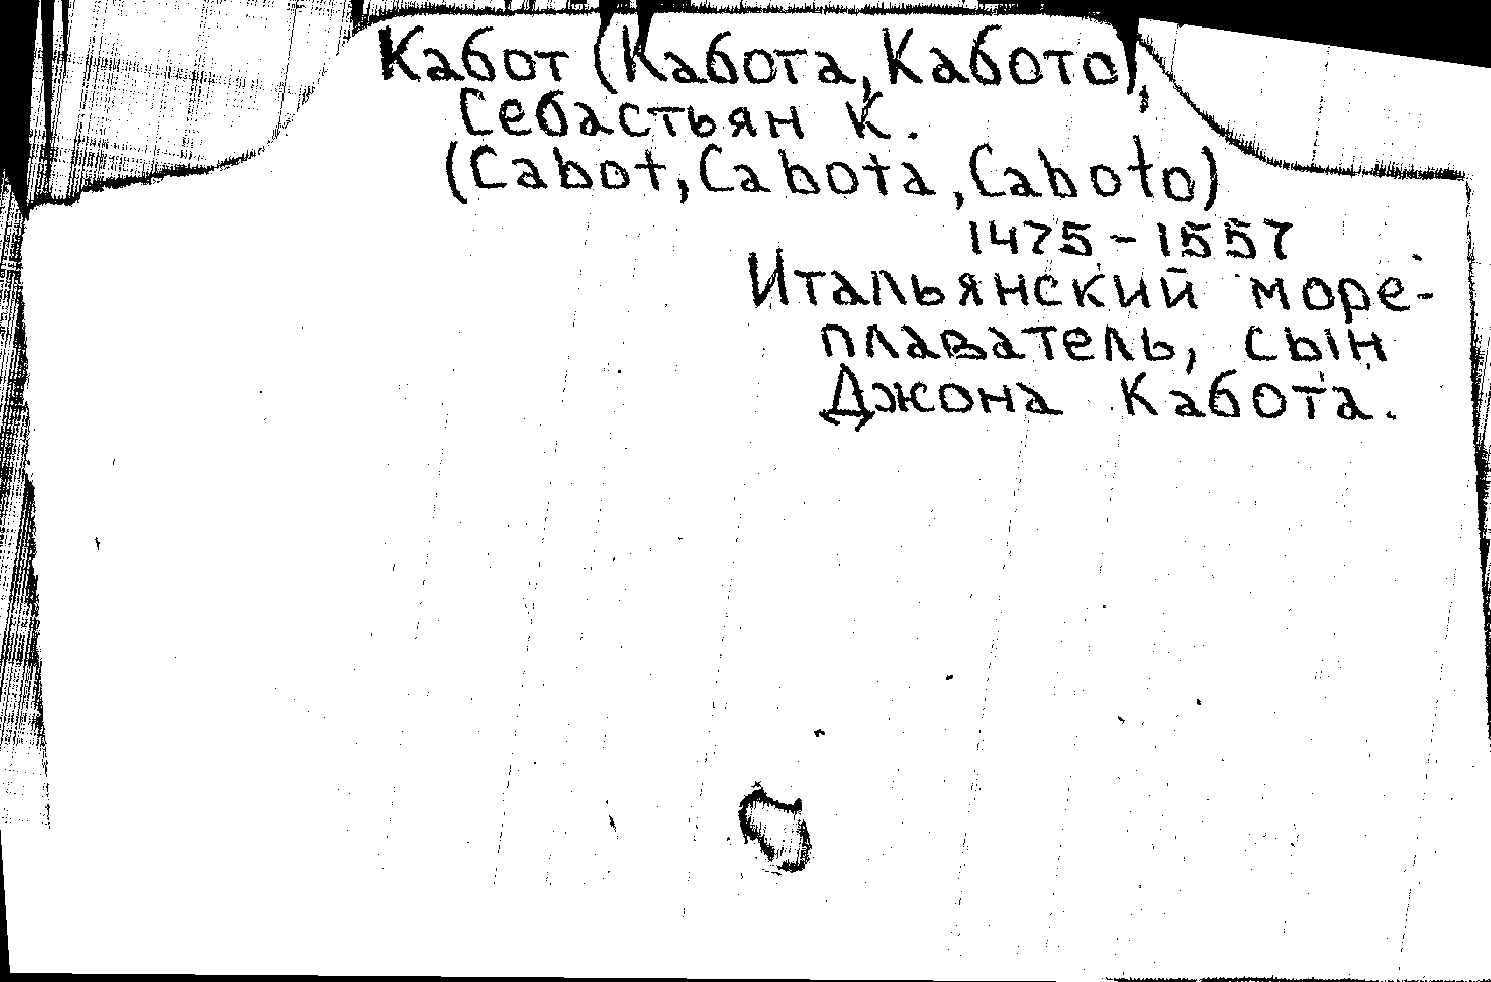 Кабот (Кабота, Кабото),
Себастьян К.
(Cabot, Cabota, Caboto)
1475-1557
Итальянский море-
плаватель, сын
Джона Кабота.